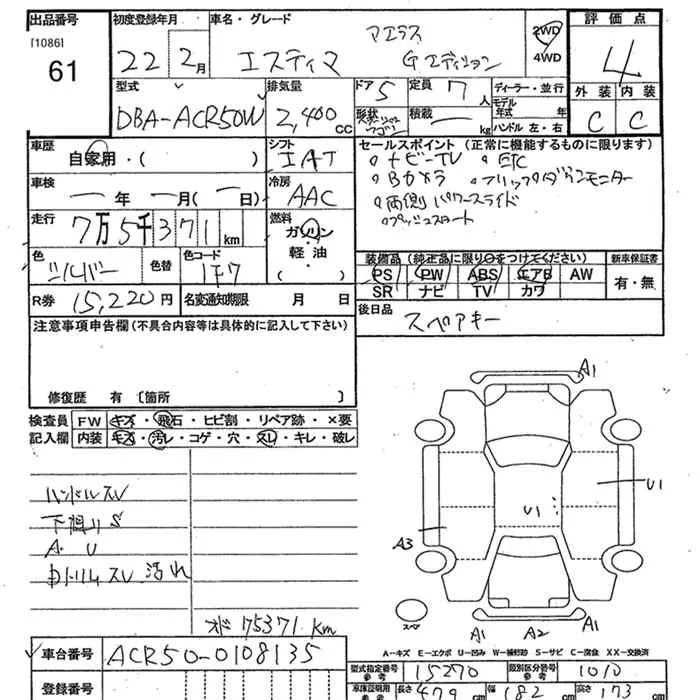 出品番号
[1086]
61
初度登録年月
22 2月
車名・グレード
アエラス
エスティマ Gエディション
2WD
4WD
評価点
4
外装 内装
C C
型式
DBA-ACR50W
排気量
2,400cc
ドア 5
形状
定員 7人
積載 ー kg
ディーラー・並行
モデル年式 年
ハンドル 左・右
車歴
自家用・( )
シフト
IAT
セールスポイント(正常に機能するものに限ります)
・ナビ-TV ・ETC
・Bカメラ ・フリップダウンモニター
・両側パワースライド
・プッシュスタート
車検
ー年 ー月(ー日)
冷房
AAC
走行
7万5千371km
燃料
ガソリン
軽・油
( )
色
シルバー
色替
色コード
1F7
装備品(純正品に限り○をつけてください)
PS PW ABS エアB AW
SR ナビ TV カワ
新車保証書
有・無
R券 15,220円
名変通知期限 月 日
後日品
スペアキー
注意事項申告欄(不具合内容等は具体的に記入して下さい)
修復歴 有〔箇所 〕
検査員
記入欄
FW キズ・飛石・ヒビ割・リペア跡・×要
内装 キズ・汚レ・コゲ・穴・スレ・キレ・破レ
ハンドルスレ
S
A・U
汚れ
オド 75371 km
A1
U1
U1
A3
A1 A2 A1
スペア
A-キズ E-エクボ U-凹み W-補修跡 S-サビ C-腐食 XX-交換済
車台番号 ACR50-0108135
登録番号
型式指定番号 参考 15270
類別区分番号 参考 1010
車庫証明用 参考 長さ 479 cm 幅 182 cm 高さ 173 cm